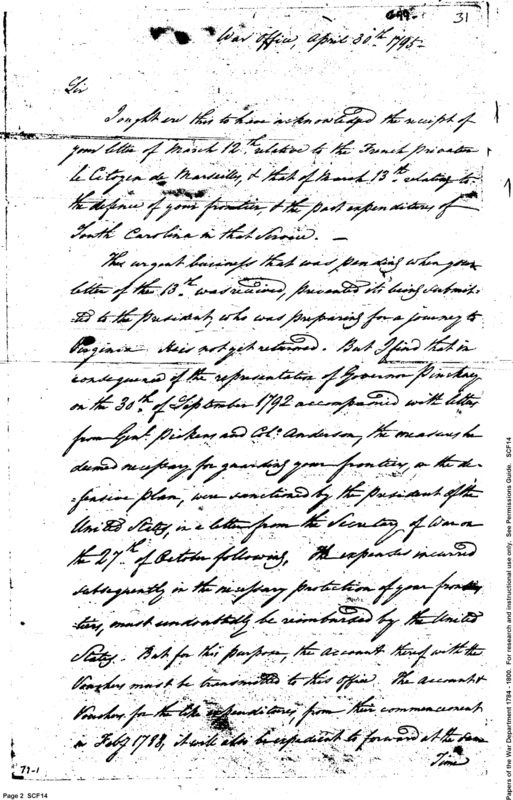 699- 31
War Office, April 30th. 1795-
Sir
I ought ere this to have acknowledged the receipt of
your letter of March 12th. relative to the French privateer
le Citoyen de Marseilles, & that of March 13th. relating to
the defence of your frontier, & the past expenditures of
South Carolina in that Service. —
The urgent business that was pending when your
letter of the 13th. was received, prevented its being submit-
ted to the President, who was preparing for a journey to
Virginia. He is not yet returned. But I find that in
consequence of the representation of Governor Pinckney
on the 30th. of September 1792 accompanied with letters
from Genl. Pickens and Colo. Anderson, the measures he
deemed necessary for guarding your frontiers, on the de-
-fensive plan, were sanctioned by the President of the
United States, in a letter from the Secretary of War on
the 27th. of October following. The expenses incurred
subsequently in the necessary protection of your fron-
tiers, must undoubtedly be reimbursed by the United
States. But for this purpose, the account thereof with the
Vouchers must be transmitted to this office. The account &
Vouchers for the like expenditures, from their commencement
in Feby 1788, it will also be expedient to forward at the same
Time
77-1
Page 2 SCF14
Papers of the War Department 1784 - 1800. For research and instructional use only. See Permissions Guide. SCF14